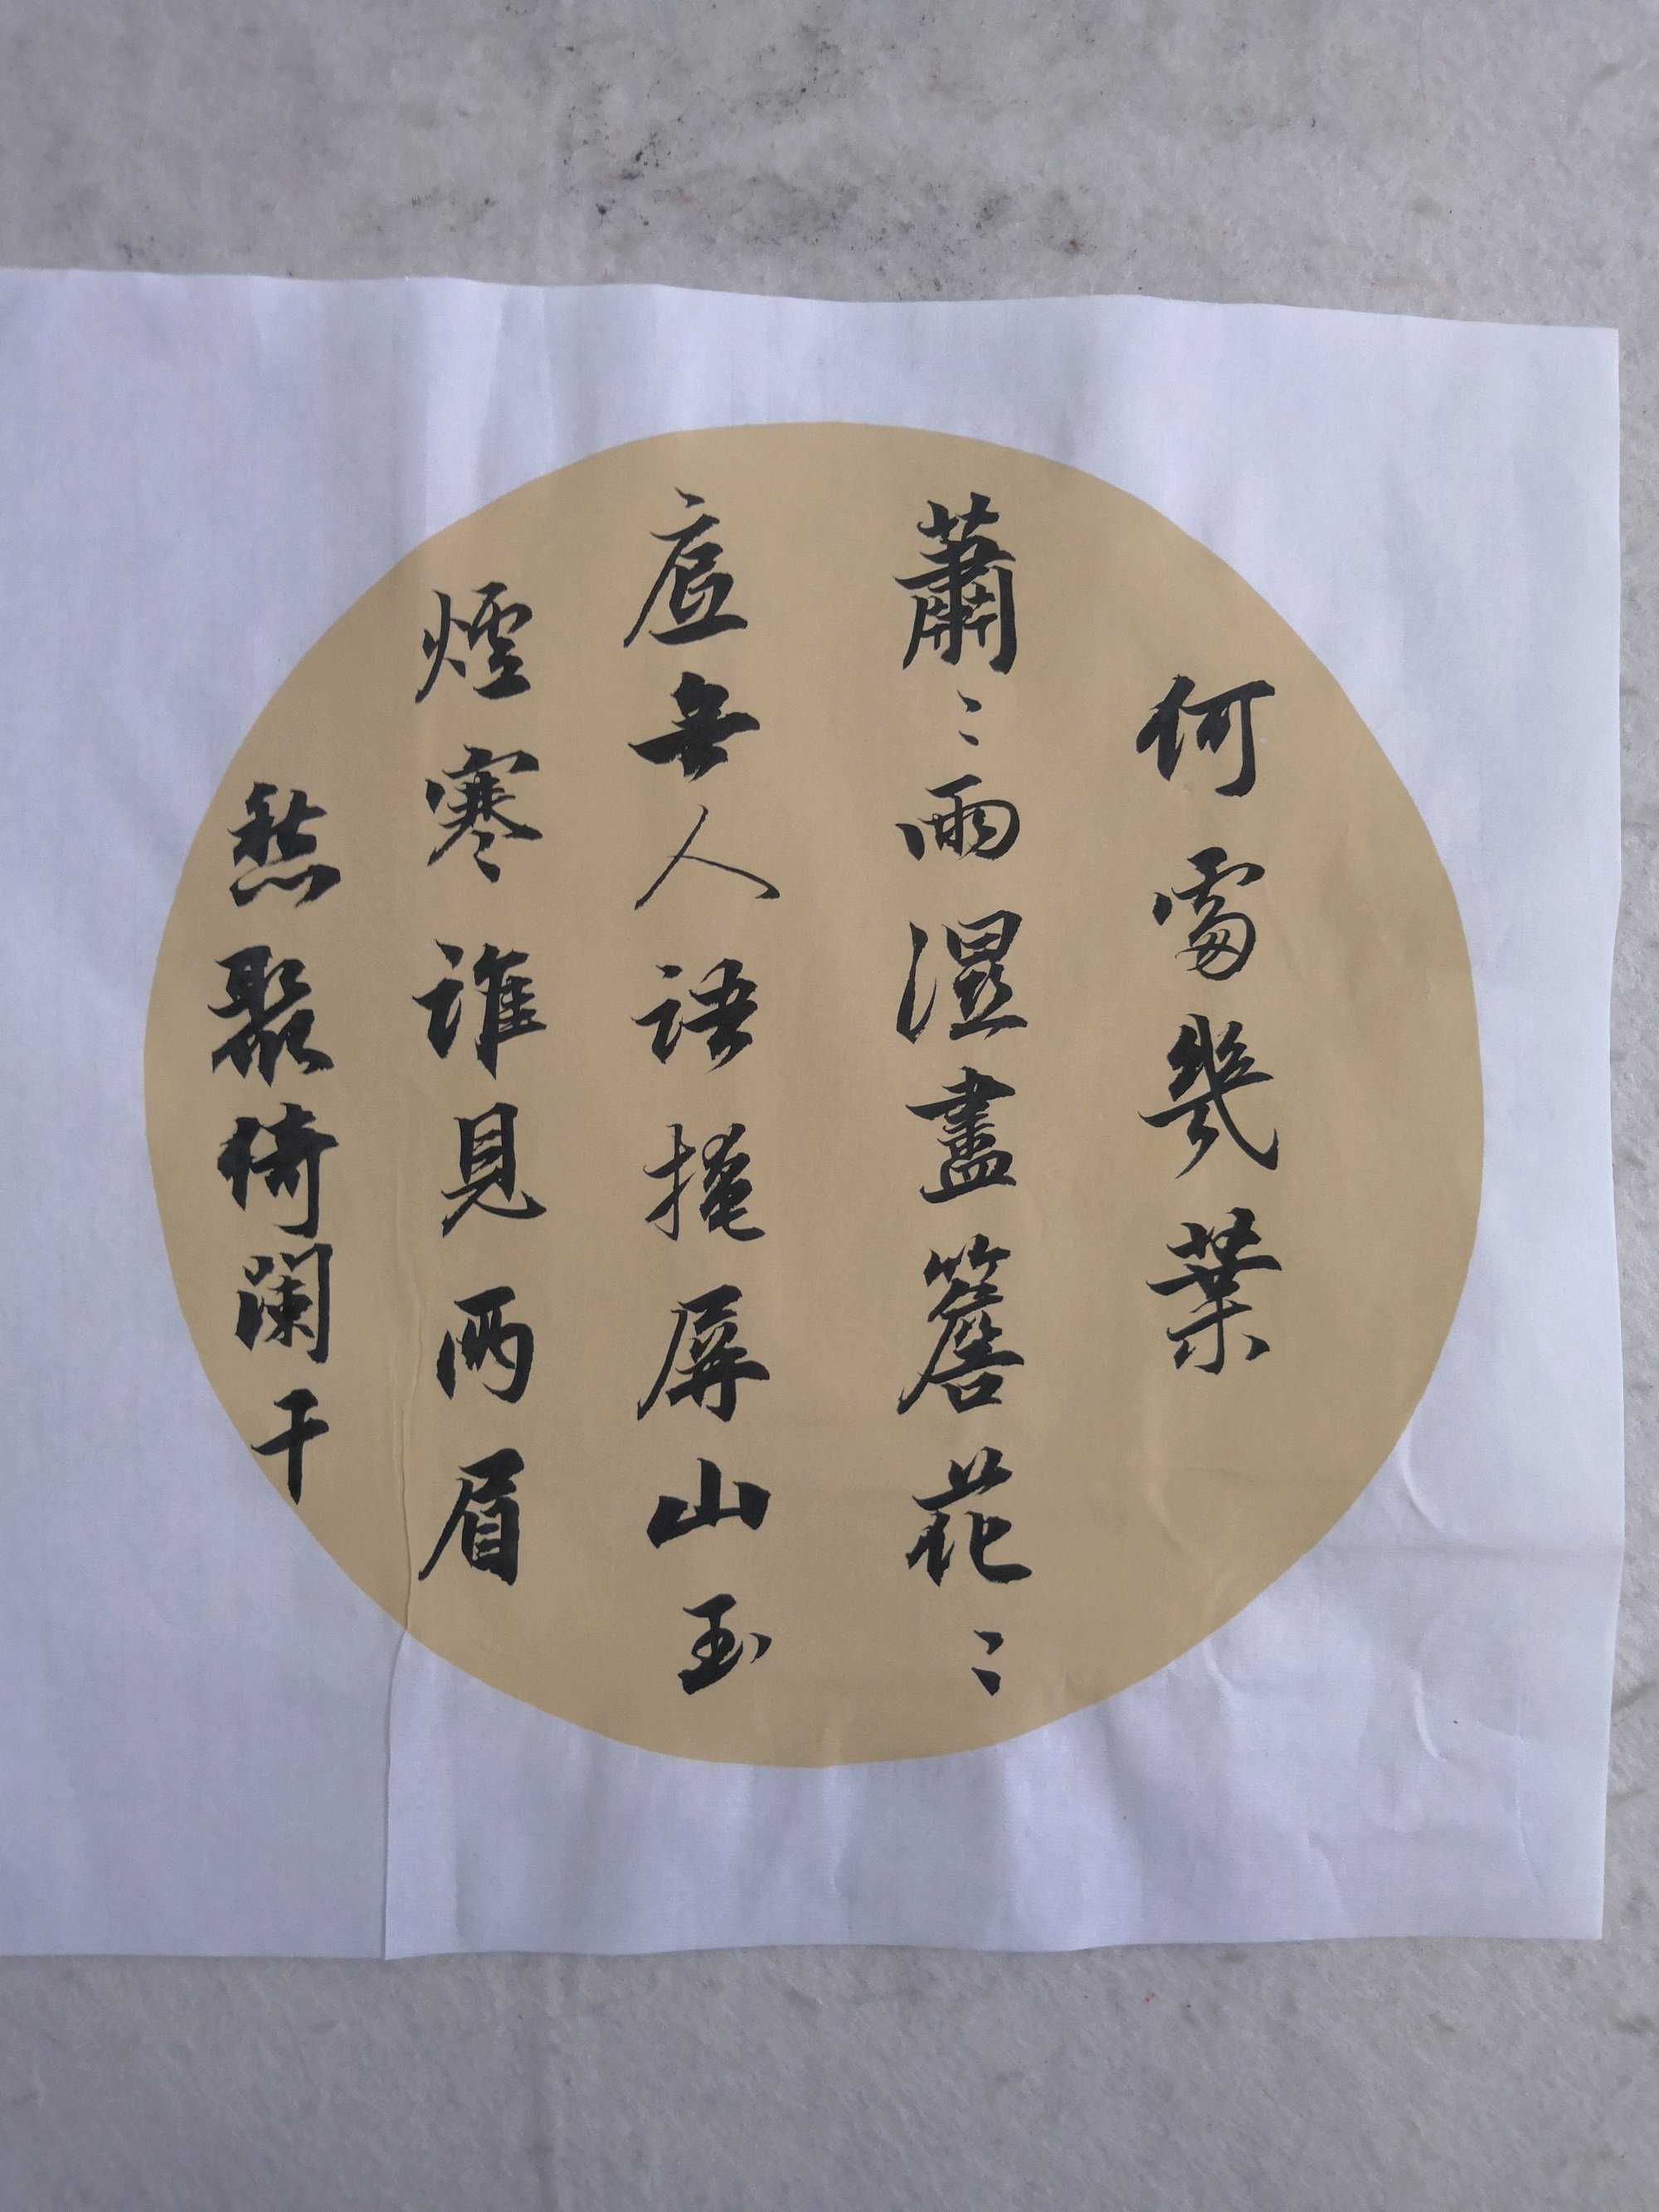 何處幾葉
蕭〻雨濕盡簷花〻
底無人語掩屏山玉
爐寒誰見兩眉
愁聚倚闌干